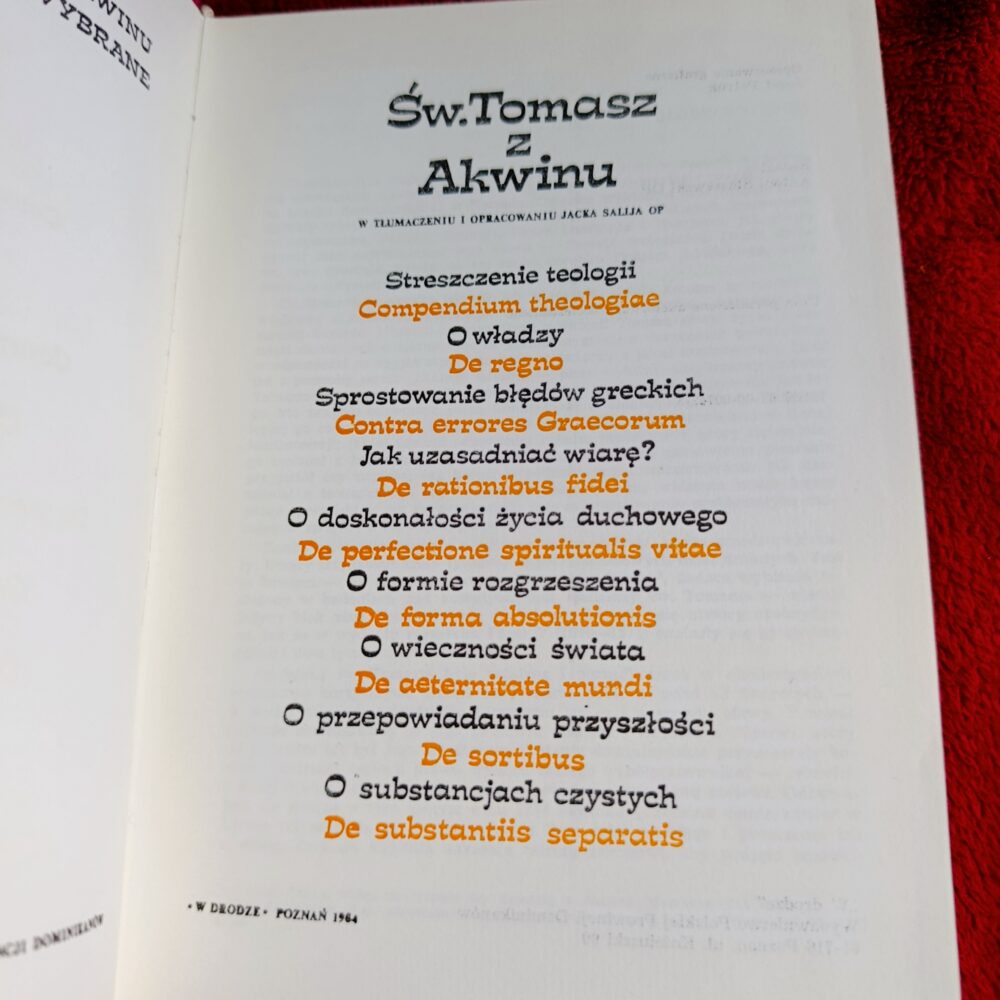 WINU
WYBRANE
Św. Tomasz
z
Akwinu
W TŁUMACZENIU I OPRACOWANIU JACKA SALIJA OP
Streszczenie teologii
Compendium theologiae
O władzy
De regno
Sprostowanie błędów greckich
Contra errores Graecorum
Jak uzasadniać wiarę?
De rationibus fidei
O doskonałości życia duchowego
De perfectione spiritualis vitae
O formie rozgrzeszenia
De forma absolutionis
O wieczności świata
De aeternitate mundi
O przepowiadaniu przyszłości
De sortibus
O substancjach czystych
De substantiis separatis
• W DRODZE • POZNAŃ 1984
NCJI DOMINIKANÓW